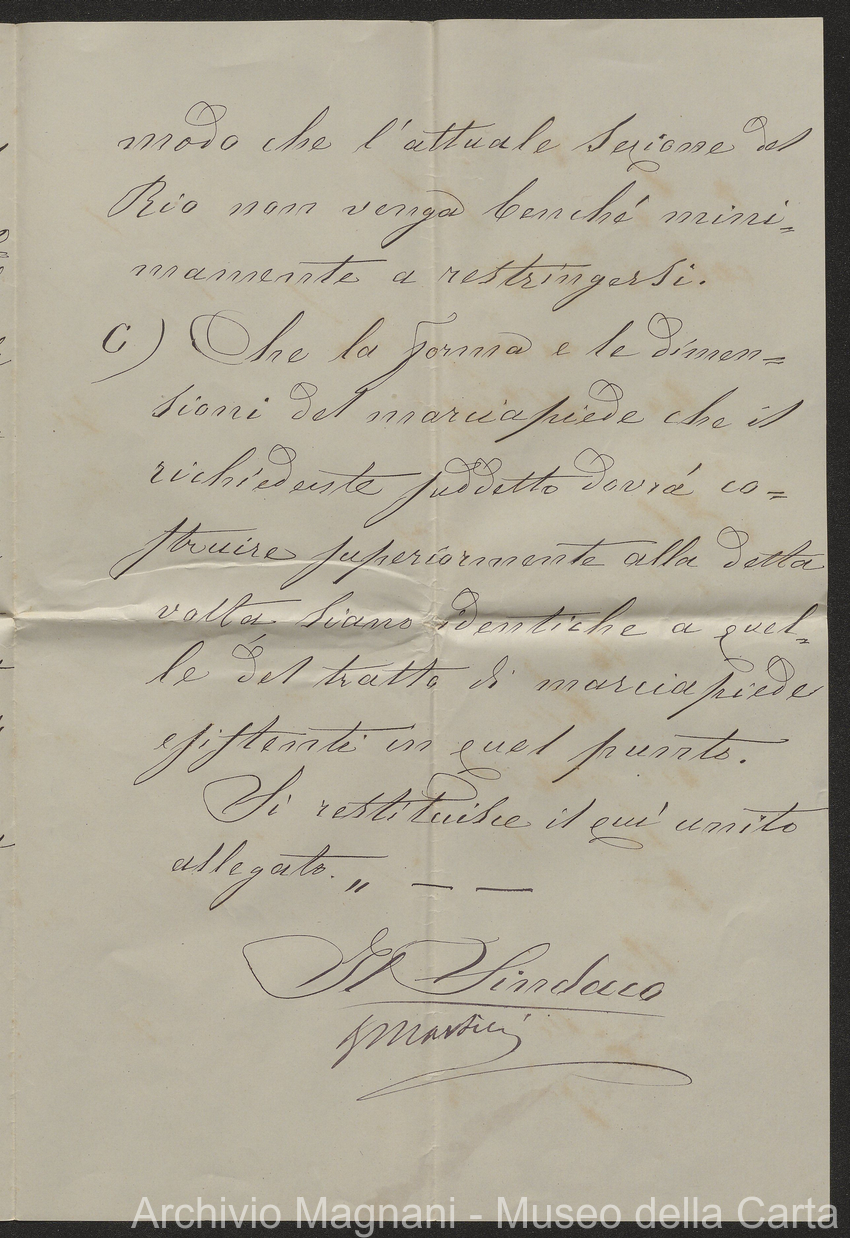 modo che l'attuale Sezione del
Rio non venga benché mini=
mamente a restringersi.
C) Che la forma e le dimen=
sioni del marciapiede che il
richiedente suddetto dovrà co=
struire superiormente alla detta
volta siano identiche a quel=
le del tratto di marciapiede
esistenti in quel punto.
Si restituisce il quì unito
allegato. „ — —
Il Sindaco
Martini
Archivio Magnani - Museo della Carta